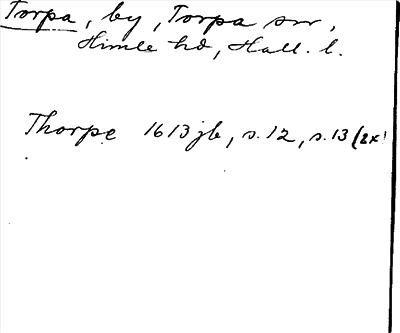 Torpa, by, Torpa sn,
Himle hd, Hall. l.
Thorpe 1613 jb, s. 12, s. 13 (2x)